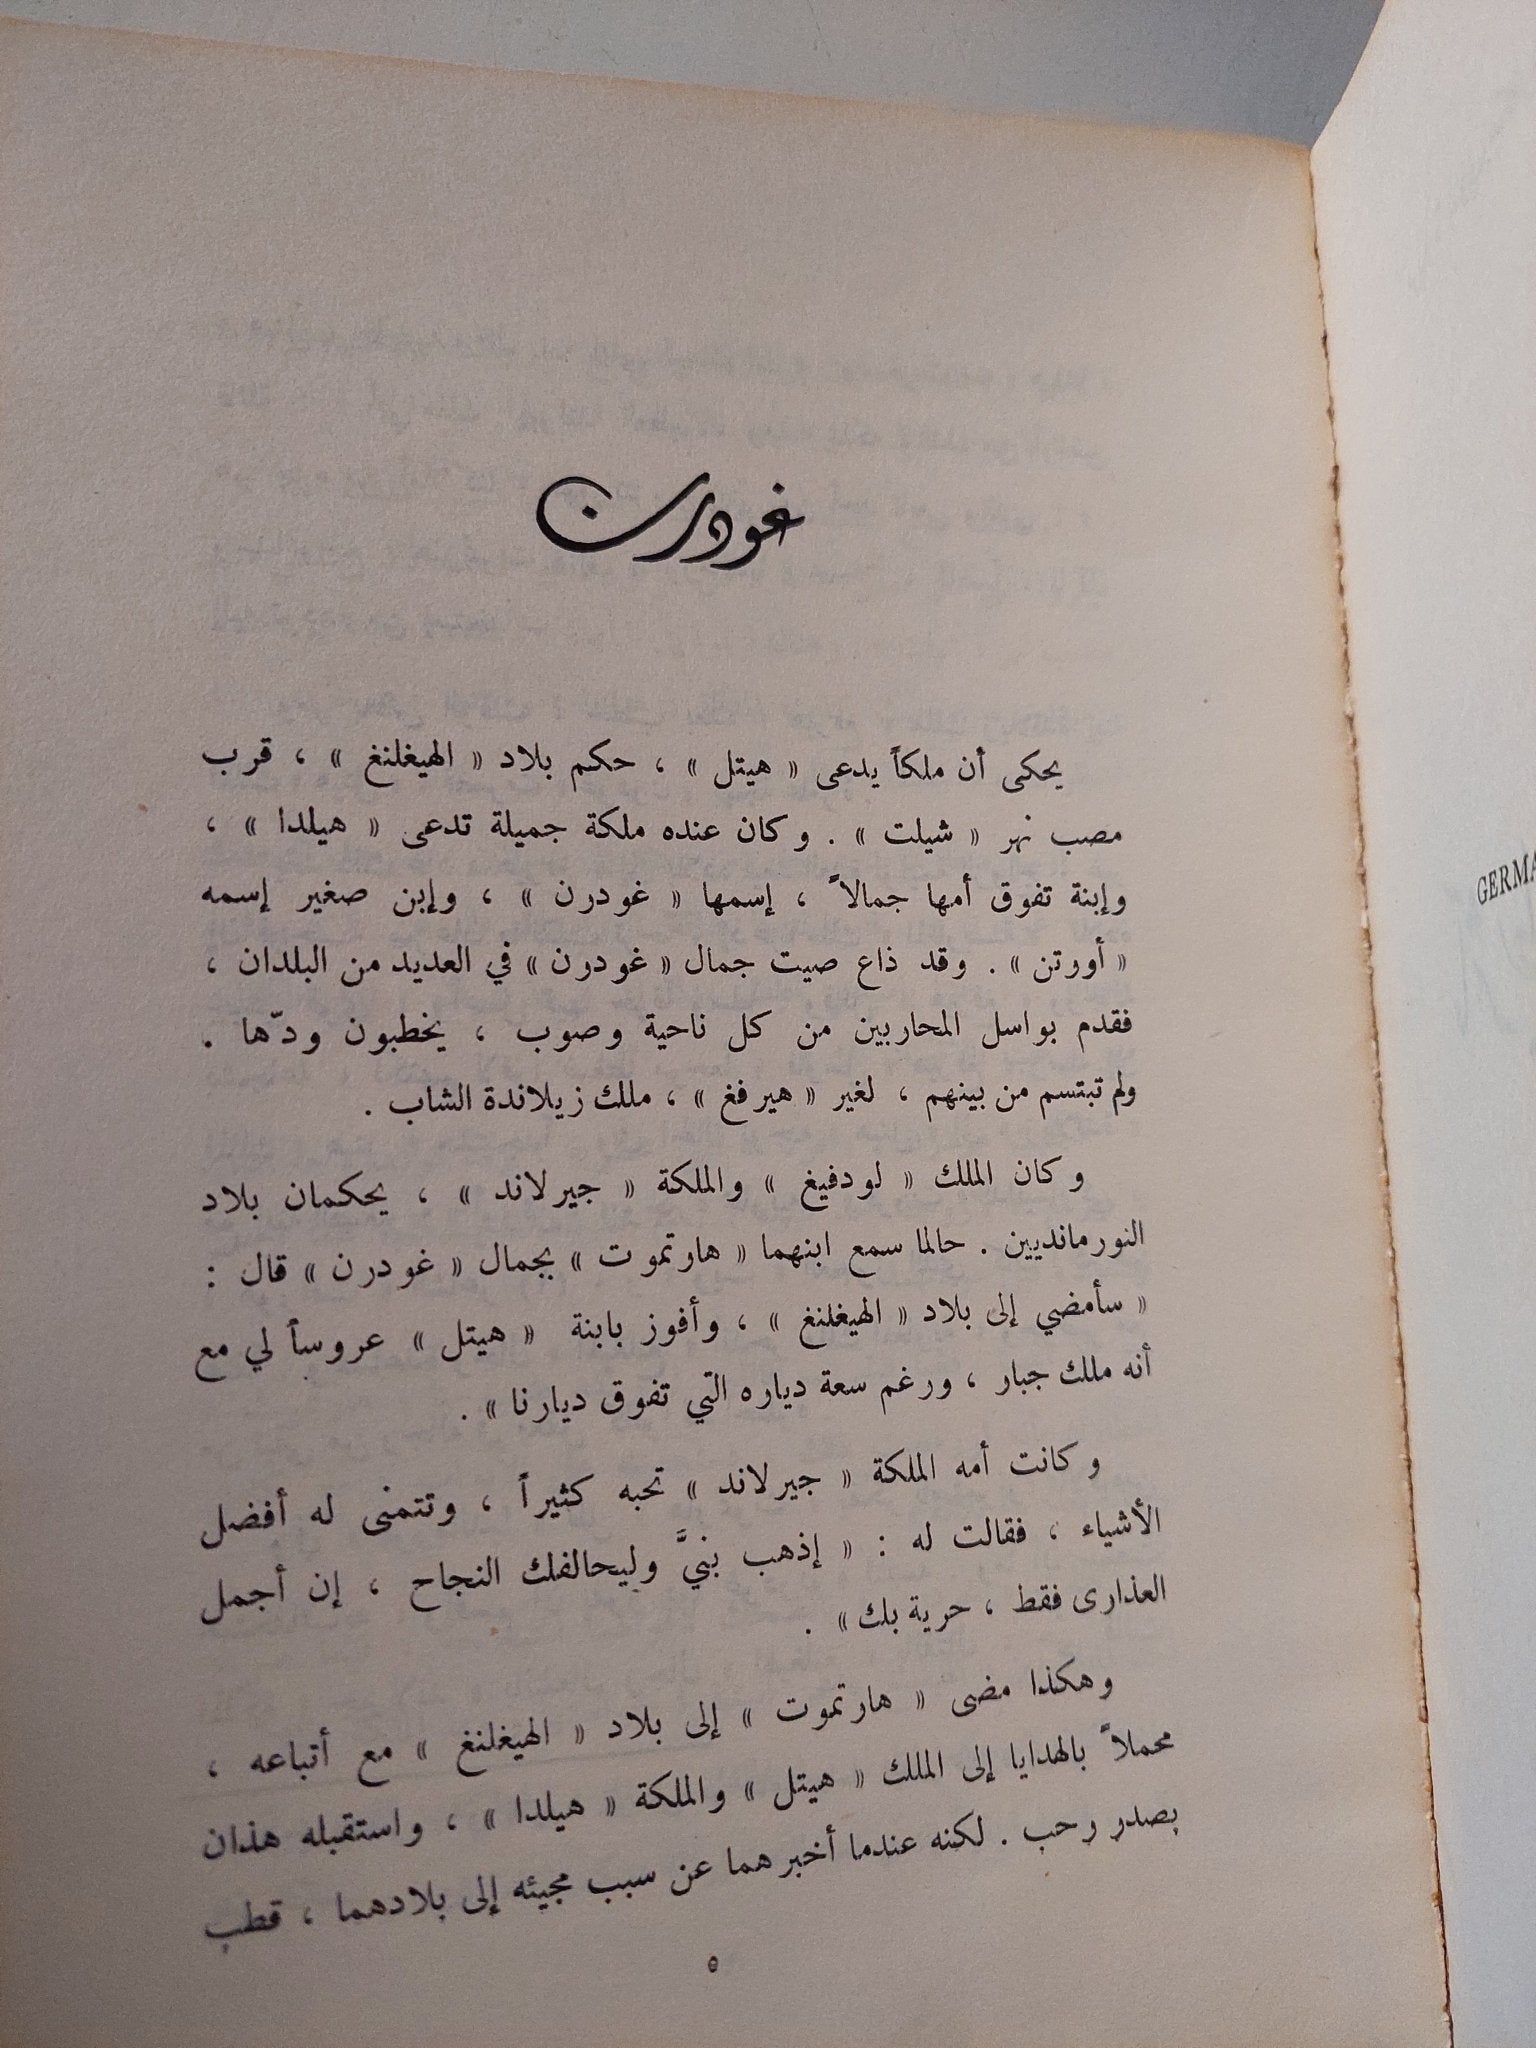 غودرن
يحكى أن ملكاً يدعى « هيتل » ، حكم بلاد « الهيغلنغ » ، قرب
مصب نهر « شيلت » . وكان عنده ملكة جميلة تدعى « هيلدا » ،
وإبنة تفوق أمها جمالاً ، إسمها « غودرن » ، وإبن صغير إسمه
« أورتن » . وقد ذاع صيت جمال « غودرن » في العديد من البلدان ،
فقدم بواسل المحاربين من كل ناحية وصوب ، يخطبون ودّها .
ولم تبتسم من بينهم ، لغير « هيرفغ » ، ملك زيلاندة الشاب .
وكان الملك « لودفيغ » والملكة « جيرلاند » ، يحكمان بلاد
النورمانديين . حالما سمع ابنهما « هارتموت » بجمال « غودرن » قال :
« سأمضي إلى بلاد « الهيغلنغ » ، وأفوز بابنة « هيتل » عروساً لي مع
أنه ملك جبار ، ورغم سعة دياره التي تفوق ديارنا » .
وكانت أمه الملكة « جيرلاند » تحبه كثيراً ، وتتمنى له أفضل
الأشياء ، فقالت له : « إذهب بنيَّ وليحالفك النجاح ، إن أجمل
العذارى فقط ، حرية بك » .
وهكذا مضى « هارتموت » إلى بلاد « الهيغلنغ » مع أتباعه ،
محملاً بالهدايا إلى الملك « هيتل » والملكة « هيلدا » ، واستقبله هذان
بصدر رحب . لكنه عندما أخبرهما عن سبب مجيئه إلى بلادهما ، قطب
٥
GERMA